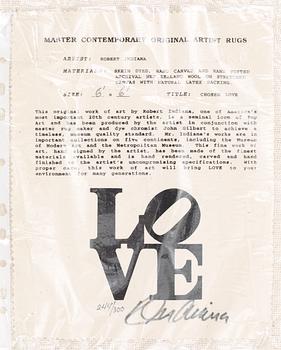 MASTER CONTEMPORARY ORIGINAL ARTIST RUGS
ARTIST: ROBERT INDIANA
MATERIALS: SKEIN DYED, HAND CARVED AND HAND TUFTED
ARCHIVAL NEW ZEALAND WOOL ON STRETCHED
CANVAS WITH NATURAL LATEX BACKING.
SIZE: 6' x 6' TITLE: CHOSEN LOVE
This original work of art by Robert Indiana, one of America's
most important 20th century artists, is a seminal icon of Pop
Art and has been produced by the artist in conjunction with
master rug maker and dye chromist John Gilbert to achieve a
timeless, museum quality standard. Mr. Indiana's works are in
important collections on five continents, including the Museum
of Modern Art and the Metropolitan Museum. This fine work of
art, hand signed by the artist, has been made of the finest
material available and is hand rendered, carved and hand
finished to the artist's uncompromising specifications. With
proper care this work of art will bring LOVE to your
environment for many generations.
LO
VE
244/300
R Indiana